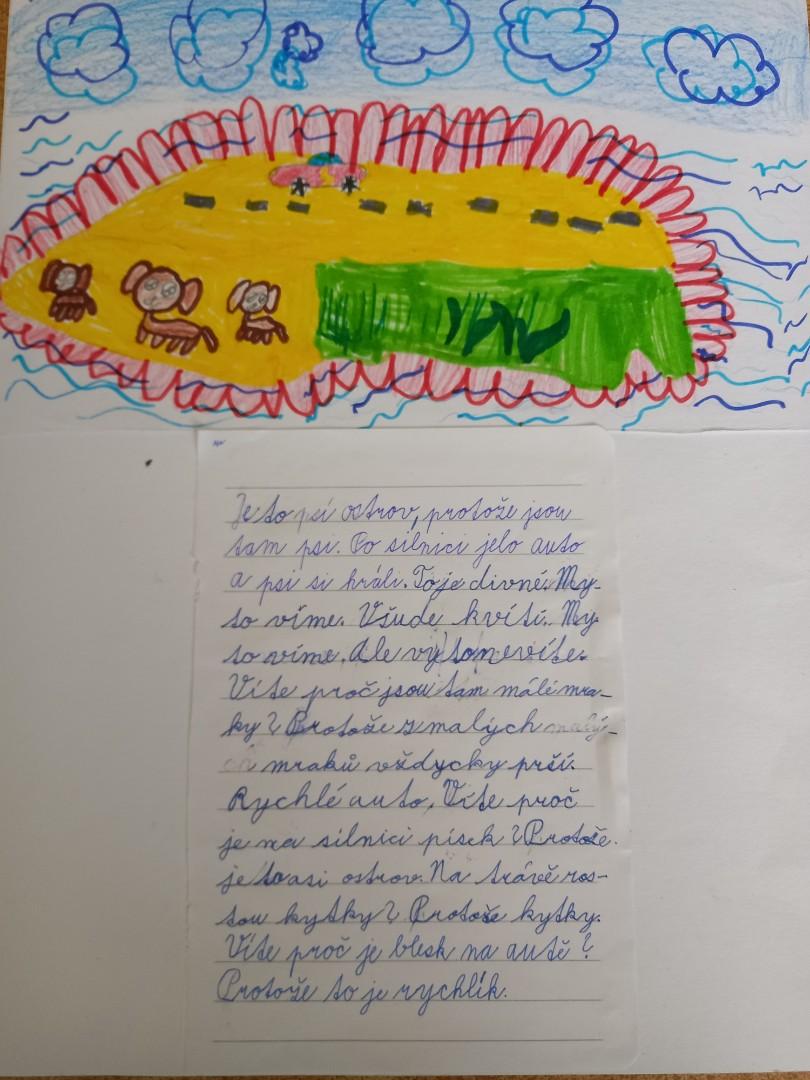 Je to psí ostrov, protože jsou
tam psi. Po silnici jelo auto
a psi si hráli. To je divné. My
to víme. Všude kvítí. My
to víme. Ale vy to nevíte.
Víte proč jsou tam málé mra-
ky? Protože z malých malý-
ch mraků vždycky prší.
Rychlé auto. Víte proč
je na silnici písek? Protože
je to asi ostrov. Na trávě ros-
tou kytky? Protože kytky.
Víte proč je blesk na autě?
Protože to je rychlík.